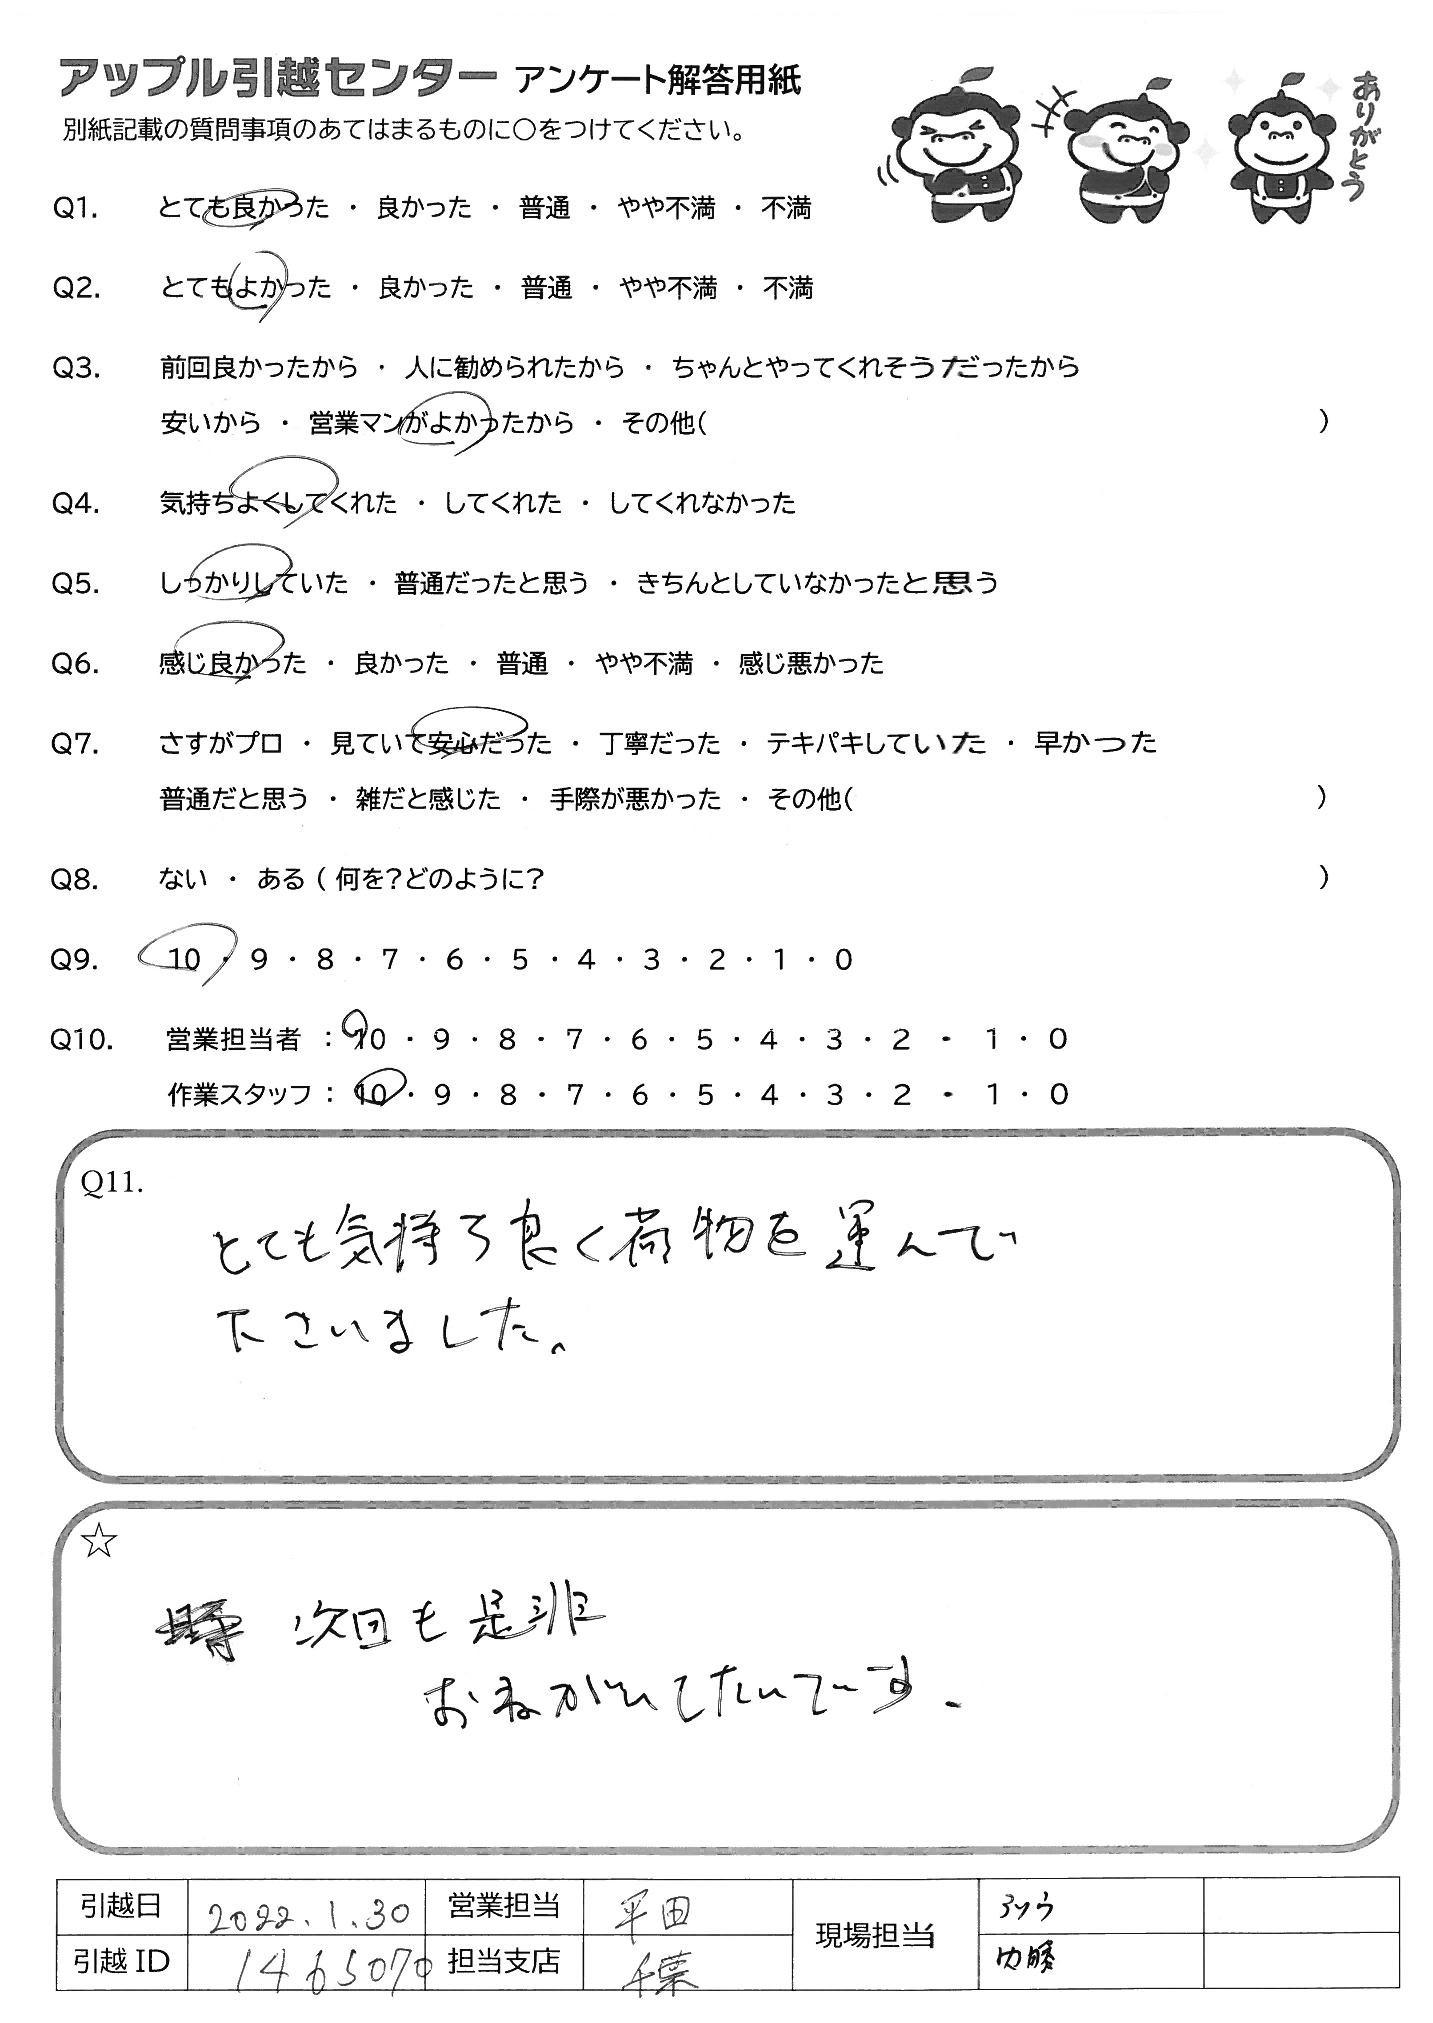 アップル引越センター アンケート解答用紙
ありがとう
別紙記載の質問事項のあてはまるものに○をつけてください。
Q1. とても良かった ・ 良かった ・ 普通 ・ やや不満 ・ 不満
Q2. とてもよかった ・ 良かった ・ 普通 ・ やや不満 ・ 不満
Q3. 前回良かったから ・ 人に勧められたから ・ ちゃんとやってくれそうだったから
安いから ・ 営業マンがよかったから ・ その他( )
Q4. 気持ちよくしてくれた ・ してくれた ・ してくれなかった
Q5. しっかりしていた ・ 普通だったと思う ・ きちんとしていなかったと思う
Q6. 感じ良かった ・ 良かった ・ 普通 ・ やや不満 ・ 感じ悪かった
Q7. さすがプロ ・ 見ていて安心だった ・ 丁寧だった ・ テキパキしていた ・ 早かった
普通だと思う ・ 雑だと感じた ・ 手際が悪かった ・ その他( )
Q8. ない ・ ある ( 何を?どのように? )
Q9. 10 ・ 9 ・ 8 ・ 7 ・ 6 ・ 5 ・ 4 ・ 3 ・ 2 ・ 1 ・ 0
Q10. 営業担当者 : 10 ・ 9 ・ 8 ・ 7 ・ 6 ・ 5 ・ 4 ・ 3 ・ 2 ・ 1 ・ 0
作業スタッフ : 10 ・ 9 ・ 8 ・ 7 ・ 6 ・ 5 ・ 4 ・ 3 ・ 2 ・ 1 ・ 0
Q11.
とても気持ち良く荷物を運んで
下さいました。
☆
次回も是非
おねがいしたいです.
引越日 2022.1.30 営業担当 平田 現場担当 アソウ
引越ID 1465070 担当支店 千葉 内勝